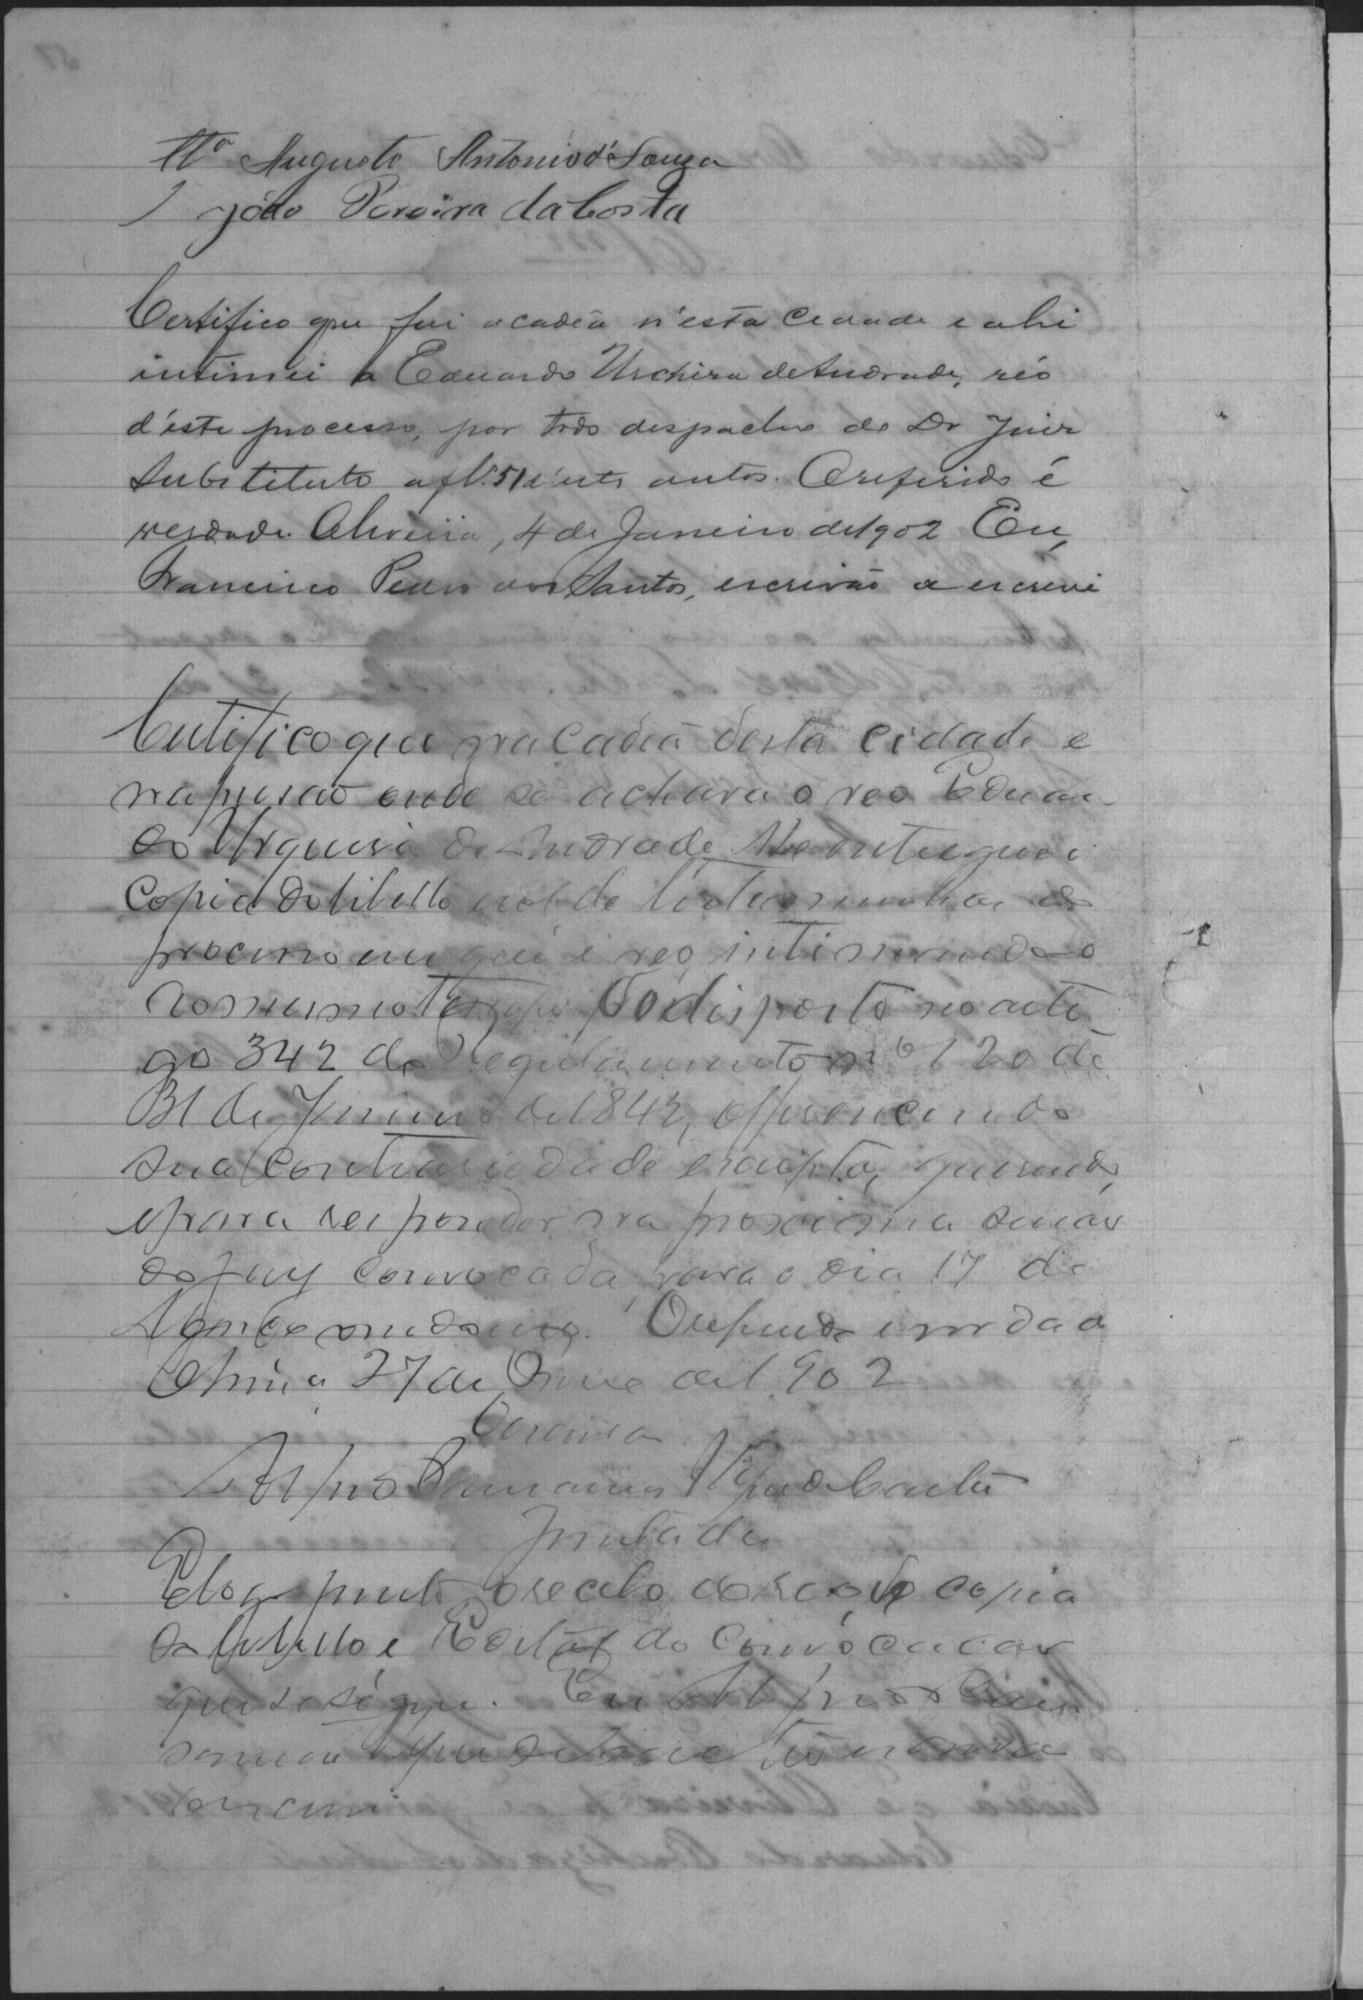 Tta Augusto Antonio d'Souza
João Pereira da Costa
Certifico que fui a cadêa n'esta Cidade e ahi
intimei a Eduardo Urchiza de Andrade, réo
d'este processo, por todo despacho do Dr Juiz
Substituto a fls 51 d'estes autos. O referido é
verdade. Oliveira, 4 de Janeiro de 1902 Eu,
Francisco Pedro dos Santos, escrivão o escrevi
Certifico que na Cadêa desta cidade e
na prisão onde se achava o reo Eduar-
do Urquisa de Andrade lhe entreguei
Copia do libello rol de testemunhas do
processo em que é reo, intimando-o
no mesmo tempo do disposto no arti-
go 342 do Regulamento nº 120 de
31 de Janeiro de 1842, offerecendo
sua contrariedade escripta, querendo,
e para responder na proxima sessão
do jury convocada para o dia 17 de
O referido é verdade
Oliveira 27 de de 1902
O escrivão
Juntada
Eloge junto o recibo do reo da copia
do libello e Edital de Convocação
que se segue. Eu
escrivão
o escrevi